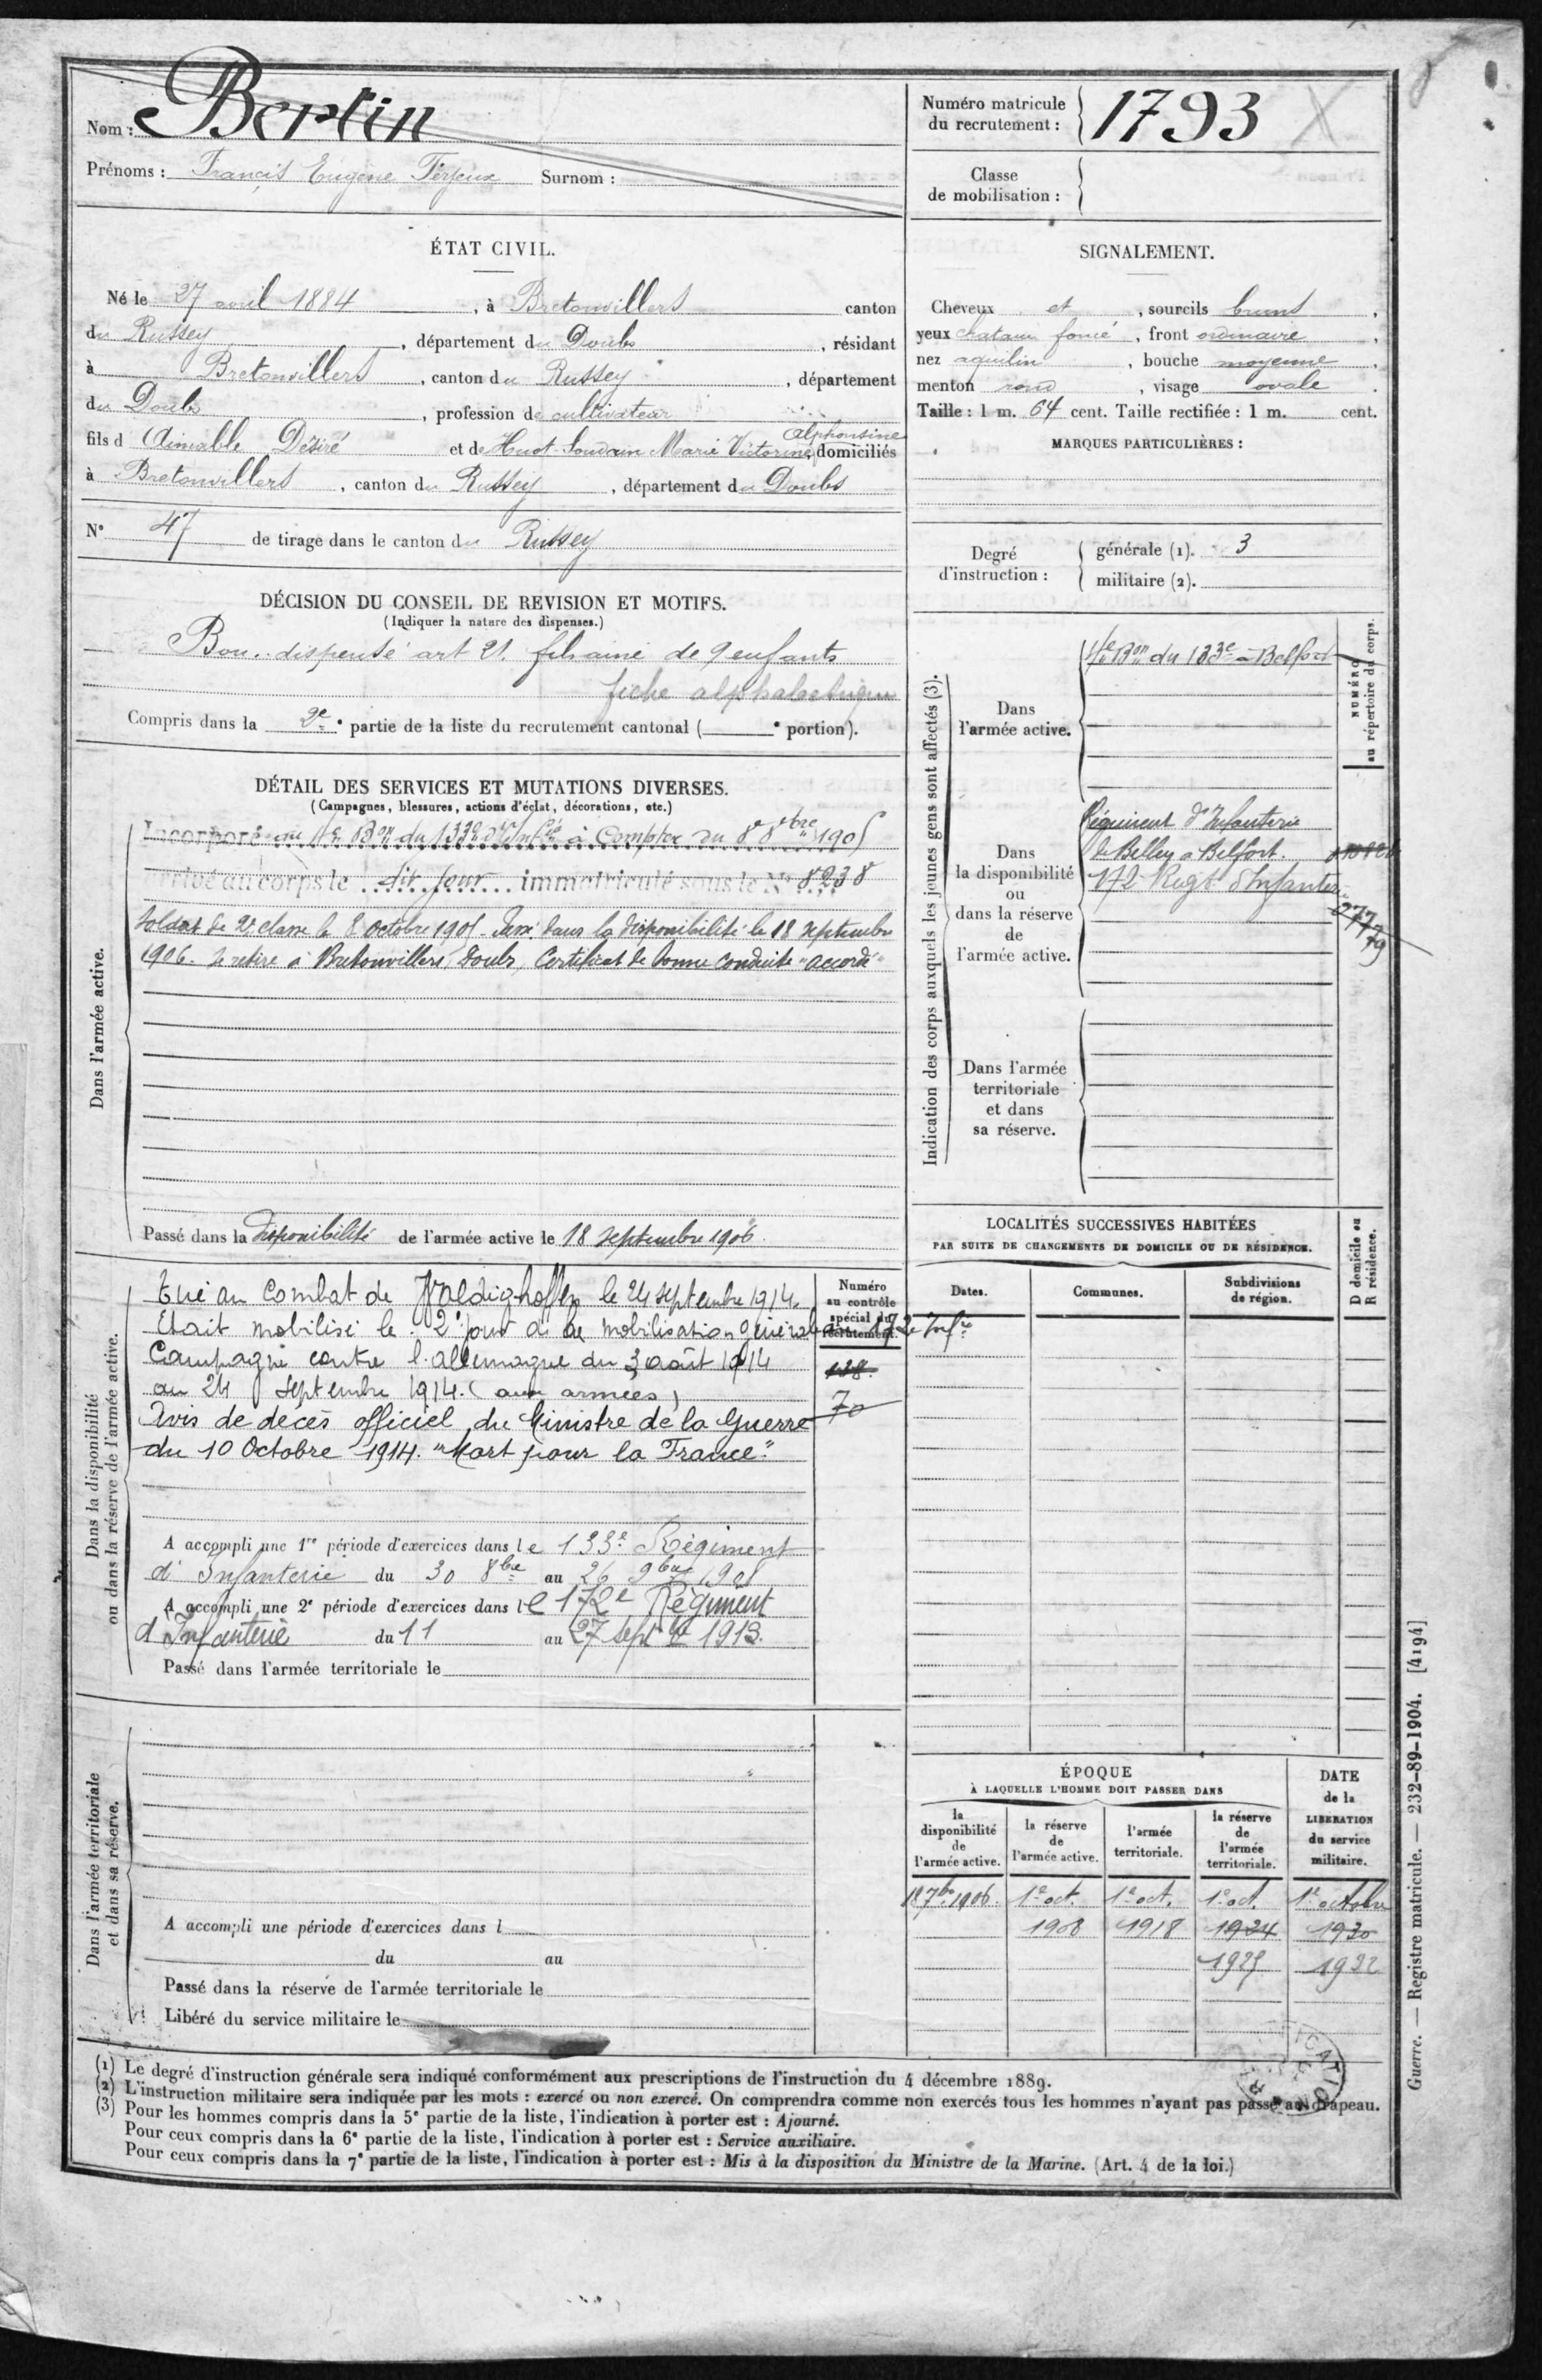 Nom : Bertin
Prénoms : Francis Eugène Surnom :
Numéro matricule du recrutement : 1793
Classe de mobilisation :
ÉTAT CIVIL.
Né le 27 avril 1884, à Bretonvillers canton
du Russey, département du Doubs, résidant
à Bretonvillers, canton du Russey, département
du Doubs, profession de cultivateur
fils d Aimable Désiré et de Huot-Soudain Marie Victorine Alphonsine, domiciliés
à Bretonvillers, canton du Russey, département du Doubs
N° 47 de tirage dans le canton du Russey
DÉCISION DU CONSEIL DE REVISION ET MOTIFS.
(Indiquer la nature des dispenses.)
Bon. dispensé art 21. fils ainé de 9 enfants
fiche alphabetique
Compris dans la 2e partie de la liste du recrutement cantonal ( e portion).
DÉTAIL DES SERVICES ET MUTATIONS DIVERSES.
(Campagnes, blessures, actions d'éclat, décorations, etc.)
Dans l'armée active.
Incorporé au 4e Bon du 133e d'Infie à Compter du 8 8bre 1905
Arrivé au corps le dit jour immatriculé sous le N° 8238
Soldat de 2e classe le 8 octobre 1905. Passé dans la disponibilité le 18 septembre
1906. Se retire à Bretonvillers, Doubs, Certificat de bonne conduite "accordé"
Passé dans la disponibilité de l'armée active le 18 septembre 1906.
Dans la disponibilité
ou dans la réserve de l'armée active.
Tué au Combat de Waldighoffen le 24 septembre 1914.
Etait mobilisé le 2e jour de la mobilisation générale au 172e Infie
Campagne contre l'allemagne du 3 août 1914
au 24 septembre 1914. (aux armées)
Avis de décès officiel du Ministre de la Guerre
du 10 Octobre 1914. "Mort pour la France."
Numéro au contrôle spécial du recrutement.
138.
70
A accompli une 1re période d'exercices dans le 133e Régiment
d'Infanterie du 30 8bre au 26 9bre 1908
A accompli une 2e période d'exercices dans le 172e Régiment
d'Infanterie du 11 au 27 septbre 1913.
Passé dans l'armée territoriale le
Dans l'armée territoriale
et dans sa réserve.
A accompli une période d'exercices dans l
du au
Passé dans la réserve de l'armée territoriale le
Libéré du service militaire le
SIGNALEMENT.
Cheveux et, sourcils bruns,
yeux chatain foncé, front ordinaire,
nez aquilin, bouche moyenne,
menton rond, visage ovale.
Taille : 1 m. 64 cent. Taille rectifiée : 1 m. cent.
MARQUES PARTICULIÈRES :
Degré d'instruction :
générale (1). 3
militaire (2).
Indication des corps auxquels les jeunes gens sont affectés (3).
NUMÉRO au répertoire du corps.
Dans l'armée active.
4e Bon du 133e à Belfort
Dans la disponibilité ou dans la réserve de l'armée active.
Régiment d'Infanterie
de Belley à Belfort.
172 Regt d'Infanterie
Dans l'armée territoriale et dans sa réserve.
LOCALITÉS SUCCESSIVES HABITÉES
PAR SUITE DE CHANGEMENTS DE DOMICILE OU DE RÉSIDENCE.
D domicile ou R résidence.
Dates. Communes. Subdivisions de région.
ÉPOQUE
À LAQUELLE L'HOMME DOIT PASSER DANS
DATE de la LIBÉRATION du service militaire.
la disponibilité de l'armée active.
la réserve de l'armée active.
l'armée territoriale.
la réserve de l'armée territoriale.
18 7bre 1906. 1er oct. 1er oct. 1er oct. 1er octobre
1908 1918 1924 1930
(1) Le degré d'instruction générale sera indiqué conformément aux prescriptions de l'instruction du 4 décembre 1889.
(2) L'instruction militaire sera indiquée par les mots : exercé ou non exercé. On comprendra comme non exercés tous les hommes n'ayant pas passé au drapeau.
(3) Pour les hommes compris dans la 5e partie de la liste, l'indication à porter est : Ajourné.
Pour ceux compris dans la 6e partie de la liste, l'indication à porter est : Service auxiliaire.
Pour ceux compris dans la 7e partie de la liste, l'indication à porter est : Mis à la disposition du Ministre de la Marine. (Art. 4 de la loi.)
Guerre. — Registre matricule. — 232-89-1904. [4194]